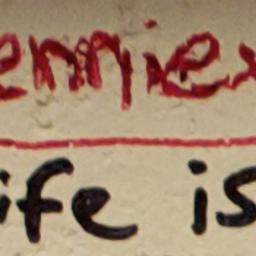 ennie
ife is